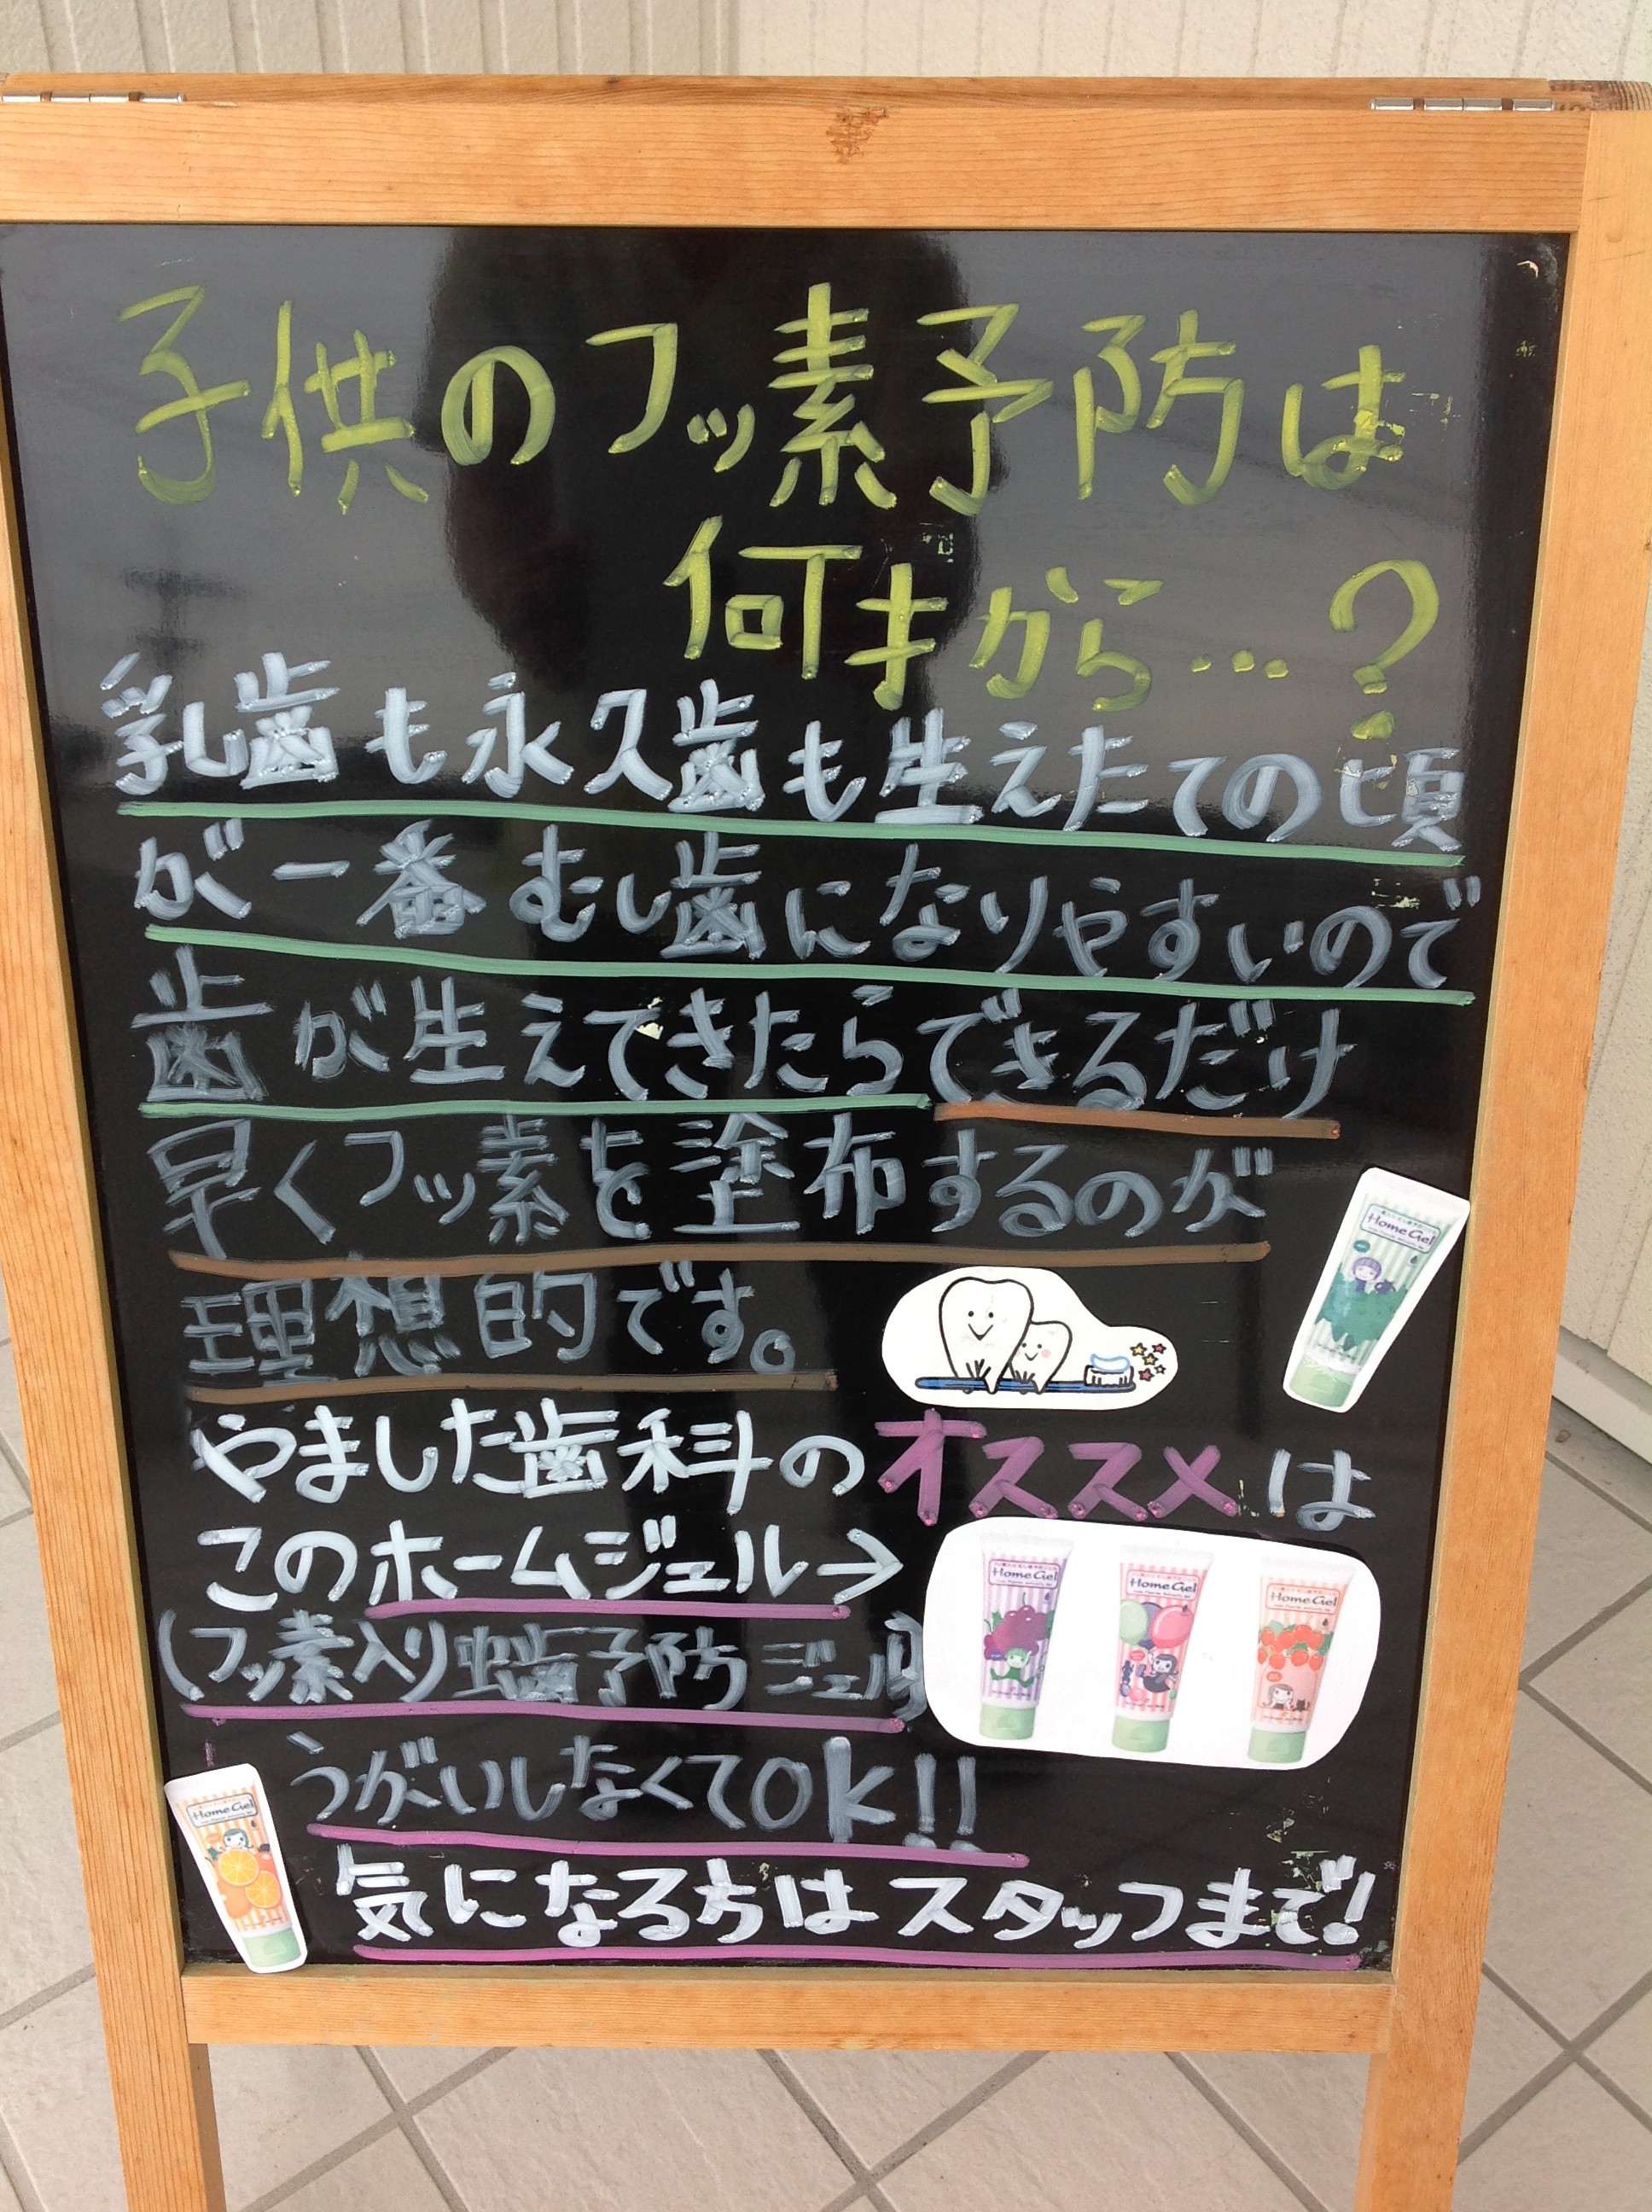 子供のフッ素予防は
何才から…?
乳歯も永久歯も生えたての頃
が一番むし歯になりやすいので
歯が生えてきたらできるだけ
早くフッ素を塗布するのが
理想的です。
やました歯科のオススメは
このホームジェル→
(フッ素入り虫歯予防ジェル)
うがいしなくてOK!!
気になる方はスタッフまで!
Home Gel
Home Gel
Home Gel
Home Gel
Home Gel